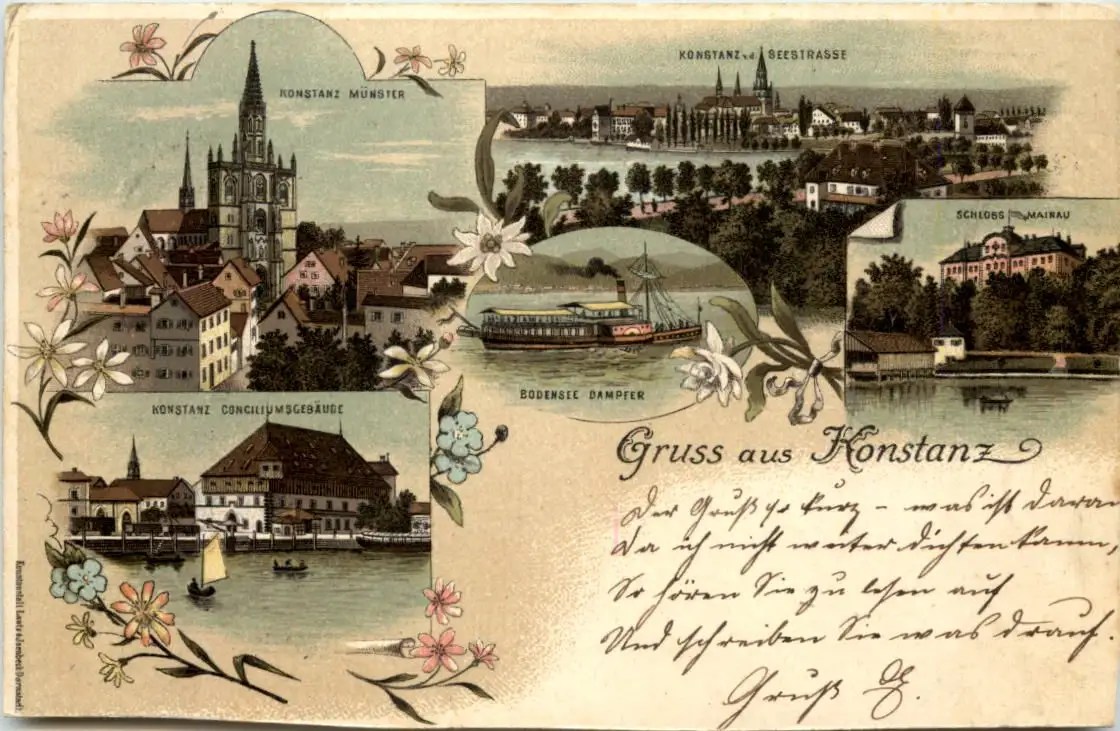 KONSTANZ MÜNSTER
KONSTANZ v.d. SEESTRASSE
SCHLOSS MAINAU
BODENSEE DAMPFER
KONSTANZ CONCILIUMSGEBÄUDE
Gruss aus Konstanz
Der Gruß zu kurz – was ist daran
Da ich nicht weiter dichten kann,
So hören Sie zu lesen auf
Und schreiben Sie was drauf.
Gruß
Kunstanstalt Lautz Darmstadt